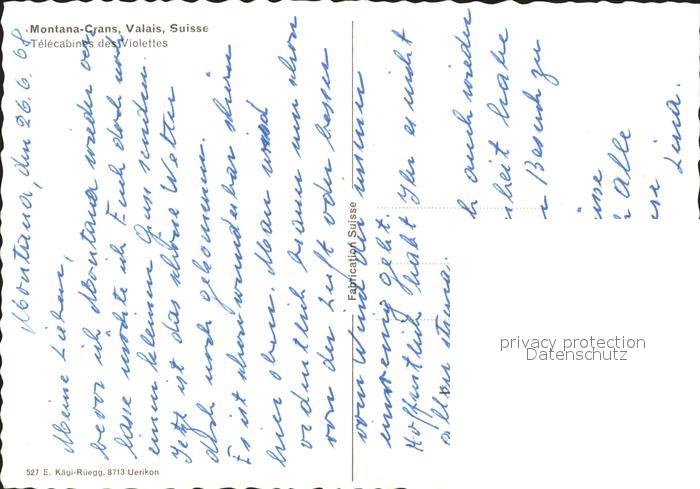 Montana-Crans, Valais, Suisse
Télécabines des Violettes
Montana, den 26.6.68.
Meine Lieben,
bevor ich Montana wieder ver-
lasse möchte ich Euch doch noch
einen kleinen Gruss senden.
Jetzt ist das schöne Wetter
doch noch gekommen.
Es ist schon wunderbar schön
hier oben. Man wird
ordentlich braun nur schon
von der Luft oder besser
vom Wind der immer
ein wenig geht.
Hoffentlich habt Ihr es nicht
allzu streng.
h auch wieder
heit habe
Besuch zu
sse
Alle
Lina.
Fabrication Suisse
privacy protection
Datenschutz
527 E. Kägi-Rüegg, 8713 Uerikon